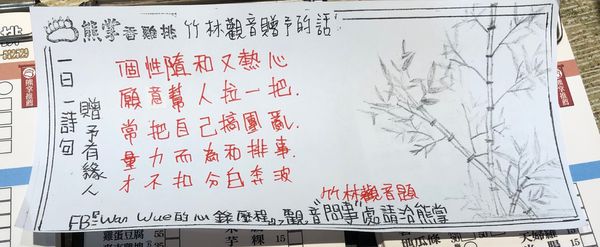 熊掌香雞排 竹林觀音贈予的話
一日一詩句
贈予有緣人
個性隨和又熱心
願意幫人拉一把.
常把自己搞團亂.
量力而為和排事.
才不扣分白奔波
竹林觀音題
觀音"問事"處請洽熊掌
熊掌推薦
雞蛋豆腐 55